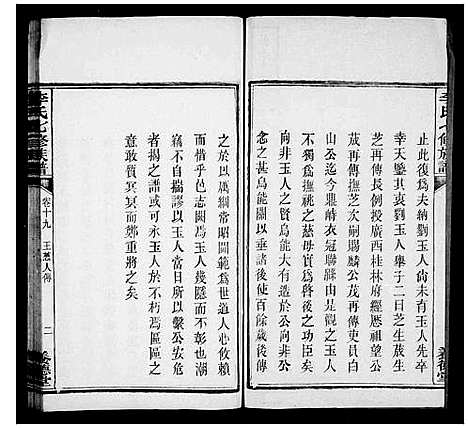 李氏七修族譜
止此後爲夫納劉玉人尙未有玉人先卒
幸天鑒其衷劉玉人舉子二曰芝生茂生
芝再傳長例授廣西桂林府經厯祖望公
茂再傳爲撫祧芝次嗣賜麟公茂再傳吏員白
非公撫祧之慈母實爲啓後之功臣矣
和玉人之賢烏能大有造於公向非公
念之甚烏能闢以垂諸後使百餘歲後傳
之於以厲綱常昭閫範爲世道人心攸賴
而惜乎邑志闕焉玉人幾隱而不彰也潮
竊不自揣謬以玉人當日所以繫公安危
者揭之譜或可永玉人於不朽區區之
意敢質冥冥而鄭重將之矣
李氏七修族譜
卷十九
玉蔥人傳
二
養德堂